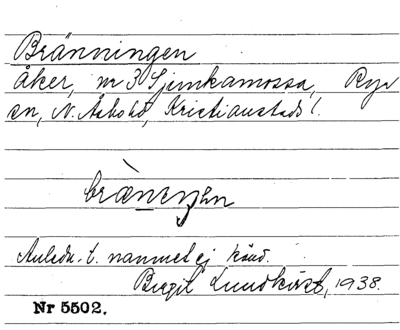 Bränningen
åker, nr 3 Sjunkamossa, Rya
sn, N. Åsbo hd, Kristianstads l.
brænɪŋən
Anledn. t. namnet ej känd.
Birgit Lundkvist, 1938.
Nr 5502.